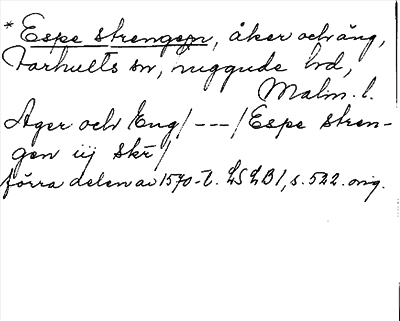 * Espe strengen, åker och äng,
Farhults sn, Luggude hd,
Malm. l.
Ager och Eng/---/Espe stren-
gen iij skr/
förra delen av 1570-t. LSLB1, s. 522. orig.